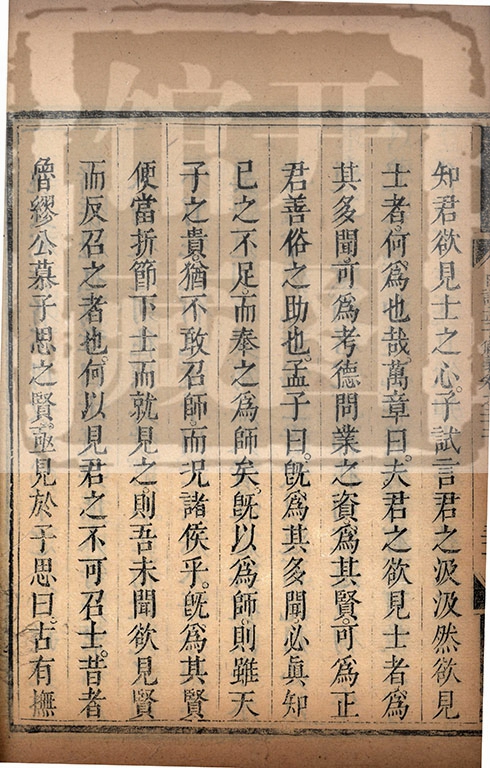 知君欲見士之心子試言君之汲汲然欲見
士者何爲也哉萬章曰夫君之欲見士者爲
其多聞可爲考德問業之資爲其賢可爲正
君善俗之助也孟子曰旣爲其多聞必眞知
已之不足而奉之爲師矣旣以爲師則雖天
子之貴猶不敢召師而況諸侯乎旣爲其賢
便當折節下士而就見之則吾未聞欲見賢
而反召之者也何以見君之不可召士昔者
魯繆公慕子思之賢亟見於子思曰古有撫